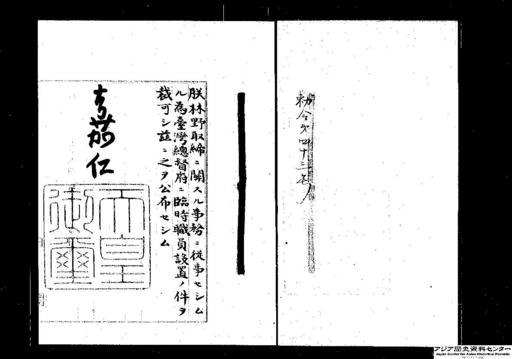 勅令第四十二号
朕林野取締ニ關スル事務ニ從事セシム
ル為臺灣總督府ニ臨時職員設置ノ件ヲ
裁可シ茲ニ之ヲ公布セシム
嘉仁
天皇
御璽
アジア歴史資料センター
Japan Center for Asian Historical Records